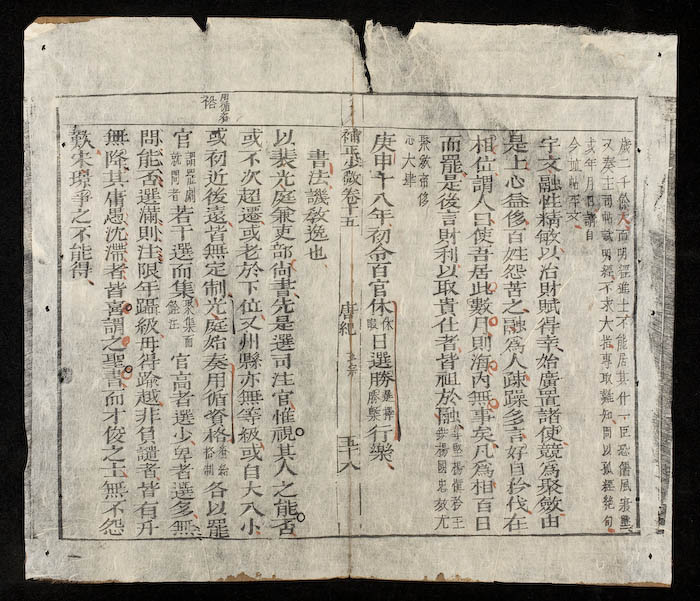 歲二千餘人而明經進士不能居其什一臣恐儒風寖墜
又奏主司帖試明經不求大指專取難知問以孤經絶句
或年月日請自
今並帖平文
宇文融性精敏以治財賦得幸始廣置諸使競爲聚斂由
是上心益侈百姓怨苦之融爲人疎躁多言好自矜伐在
相位謂人曰使吾居此數月則海內無事矣凡爲相百日
而罷是後言財利以取貴仕者皆祖於融韋堅楊慎矜王鉷楊國忠教尤
聚斂帝侈
心大肆
庚申十八年初令百官休休暇日選勝選擇勝槩行樂
補正少微卷十五 唐紀 玄宗 五十八
書法譏敎逸也
以裴光庭兼吏部尚書先是選司注官惟視其人之能否
或不次超遷或老於下位又州縣亦無等級或自大入小
用循資
格
或初近後遠皆無定制光庭始奏用循資格各以罷
官謂罷官就閒者若干選而集聚集而銓正官高者選少卑者選多無
問能否選滿則注限年躡級毋得踰越非負譴者皆有升
無降其庸愚沈滯者皆喜謂之聖書而才俊之士無不怨
歎宋璟爭之不能得